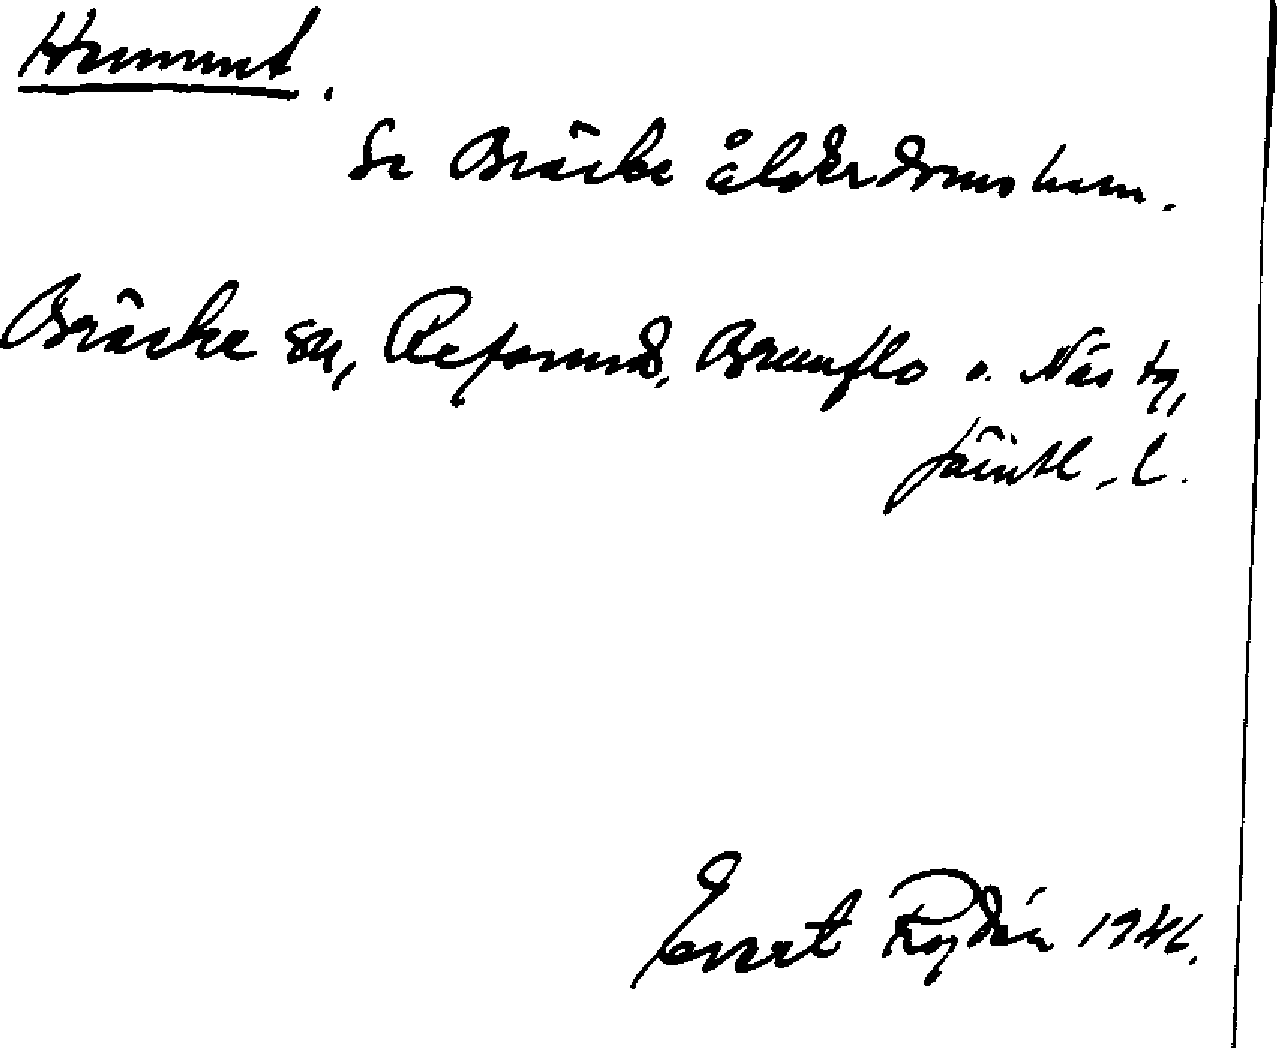 Hemmet.
Se Bräcke ålderdomshem.
Bräcke sn, Refsund, Brunflo o. Näs tg,
Jämtl. l.
Evert Rydén 1946.